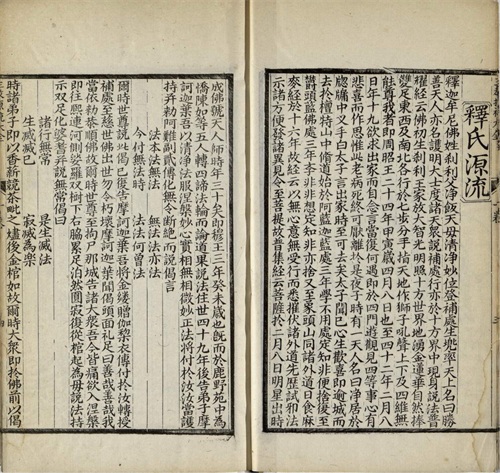 釋氏源流
釋迦牟尼佛姓剎利父淨飯天母清淨妙位登補處生兜率天上名曰勝
善天人亦名護明大士度諸天眾說補處行亦於十方界中現身說法普
耀經云佛初生剎利王家放大智光明照十方世界地湧金蓮華自然捧
雙足東西及南北各行於七步分手指天地作獅子吼聲上下及四維無
能尊我者即周昭王二十四年甲寅歲四月八日也至四十二年二月八
日年十九欲求出家而自念言當復何遇即於四門遊觀見四等事心有
悲喜而作思惟此老病死終可厭離於是夜子時有一天人名曰淨居於
牕牖中叉手白太子言出家時至可去矣太子聞已心生歡喜即逾城而
去於檀特山中修道始於阿藍迦藍處三年學不用處定知非便捨復至
鬱頭藍佛處三年學非非想定知非亦捨又至象頭山同諸外道日食麻
麥經於十六年故經云以無心意無受行而悉摧伏諸外道先歷試邪法
示諸方便發諸異見令至菩提故普集經云菩薩於二月八日明星出時
成佛號天人師時年三十矣即穆王三年癸未歲也既而於鹿野苑中為
憍陳如等五人轉四諦法輪而論道果說法住世四十九年後告弟子摩
訶迦葉吾以清淨法眼涅槃妙心實相無相微妙正法將付於汝汝當護
持并勅阿難副貳傳化無令斷絕而說偈言
法本法無法　無法法亦法
今付無法時　法法何曾法
爾時世尊說此偈已復告摩訶迦葉吾將金縷僧伽梨衣傳付於汝轉授
補處至慈氏佛出世勿令朽壞摩訶迦葉聞偈頭面禮足曰善哉善哉我
當依勅恭順佛故爾時世尊至拘尸那城告諸大眾吾今背痛欲入涅槃
即往熙連河側娑羅雙樹下右脇累足泊然圓寂復從棺起為母說法特
示雙足化婆耆并說無常偈曰
諸行無常　是生滅法
生滅滅已　寂滅為樂
時諸弟子即以香薪競茶毗之燼後金棺如故爾時大眾即於佛前以偈